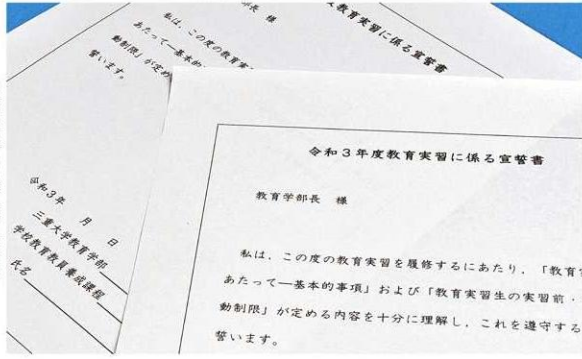 長 様
教育実習に係る宣誓書
私は、この度の教育実
あたって―基本的
動制限」が定め
誓います。
令和3年 月 日
三重大学教育学部
学校教育教員養成課程
氏名
令和3年度教育実習に係る宣誓書
教育学部長 様
私は、この度の教育実習を履修するにあたり，「教育
あたって―基本的事項」および「教育実習生の実習前・
動制限」が定める内容を十分に理解し，これを遵守する
誓います。